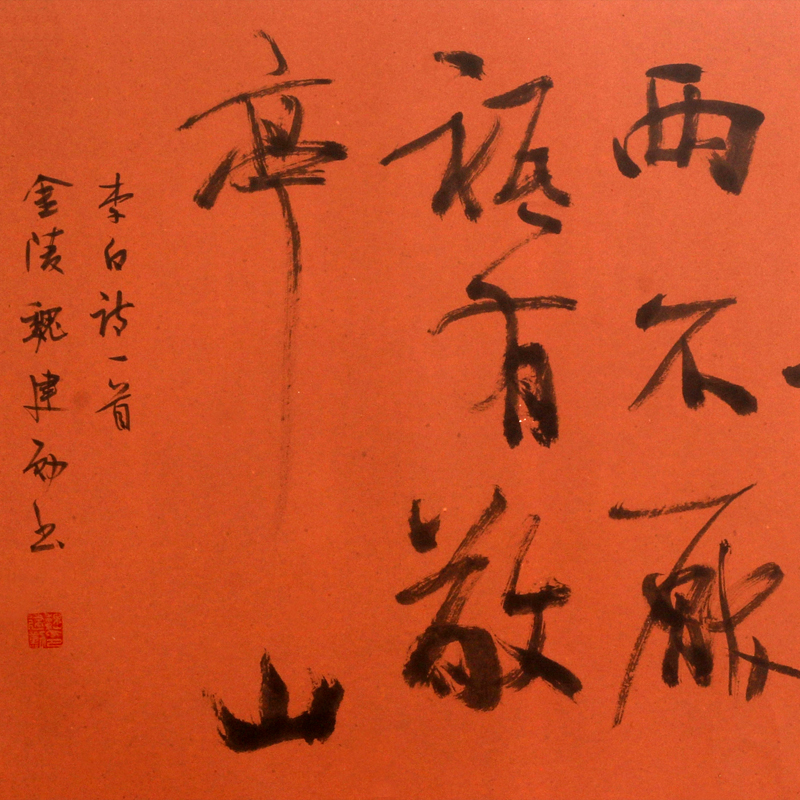 两不厭
祗有敬
亭山
李白诗一首
金陵魏建书